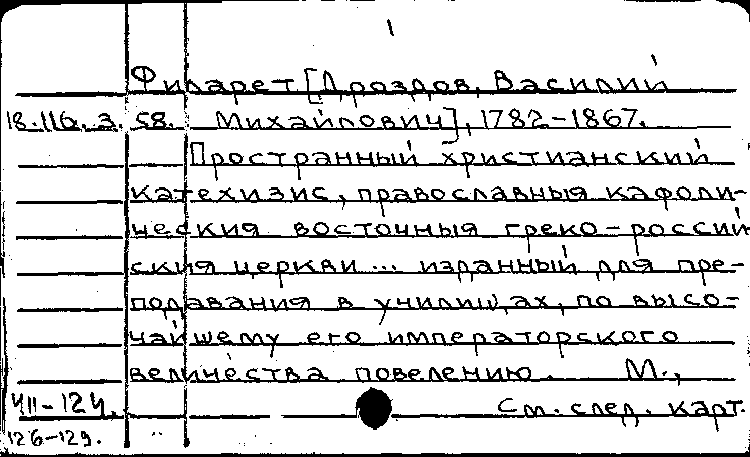 1
Филарет [Дроздов, Василий
18.116.3.58. Михайлович], 1782-1867.
Пространный христианский
катехизис, православныя кафоли-
ческия восточныя греко-россий
ския церкви... изданный для пре-
подавания в училищах, по высо-
чайшему его императорского
величества повелению. М.,
См. след. карт.
126-129.